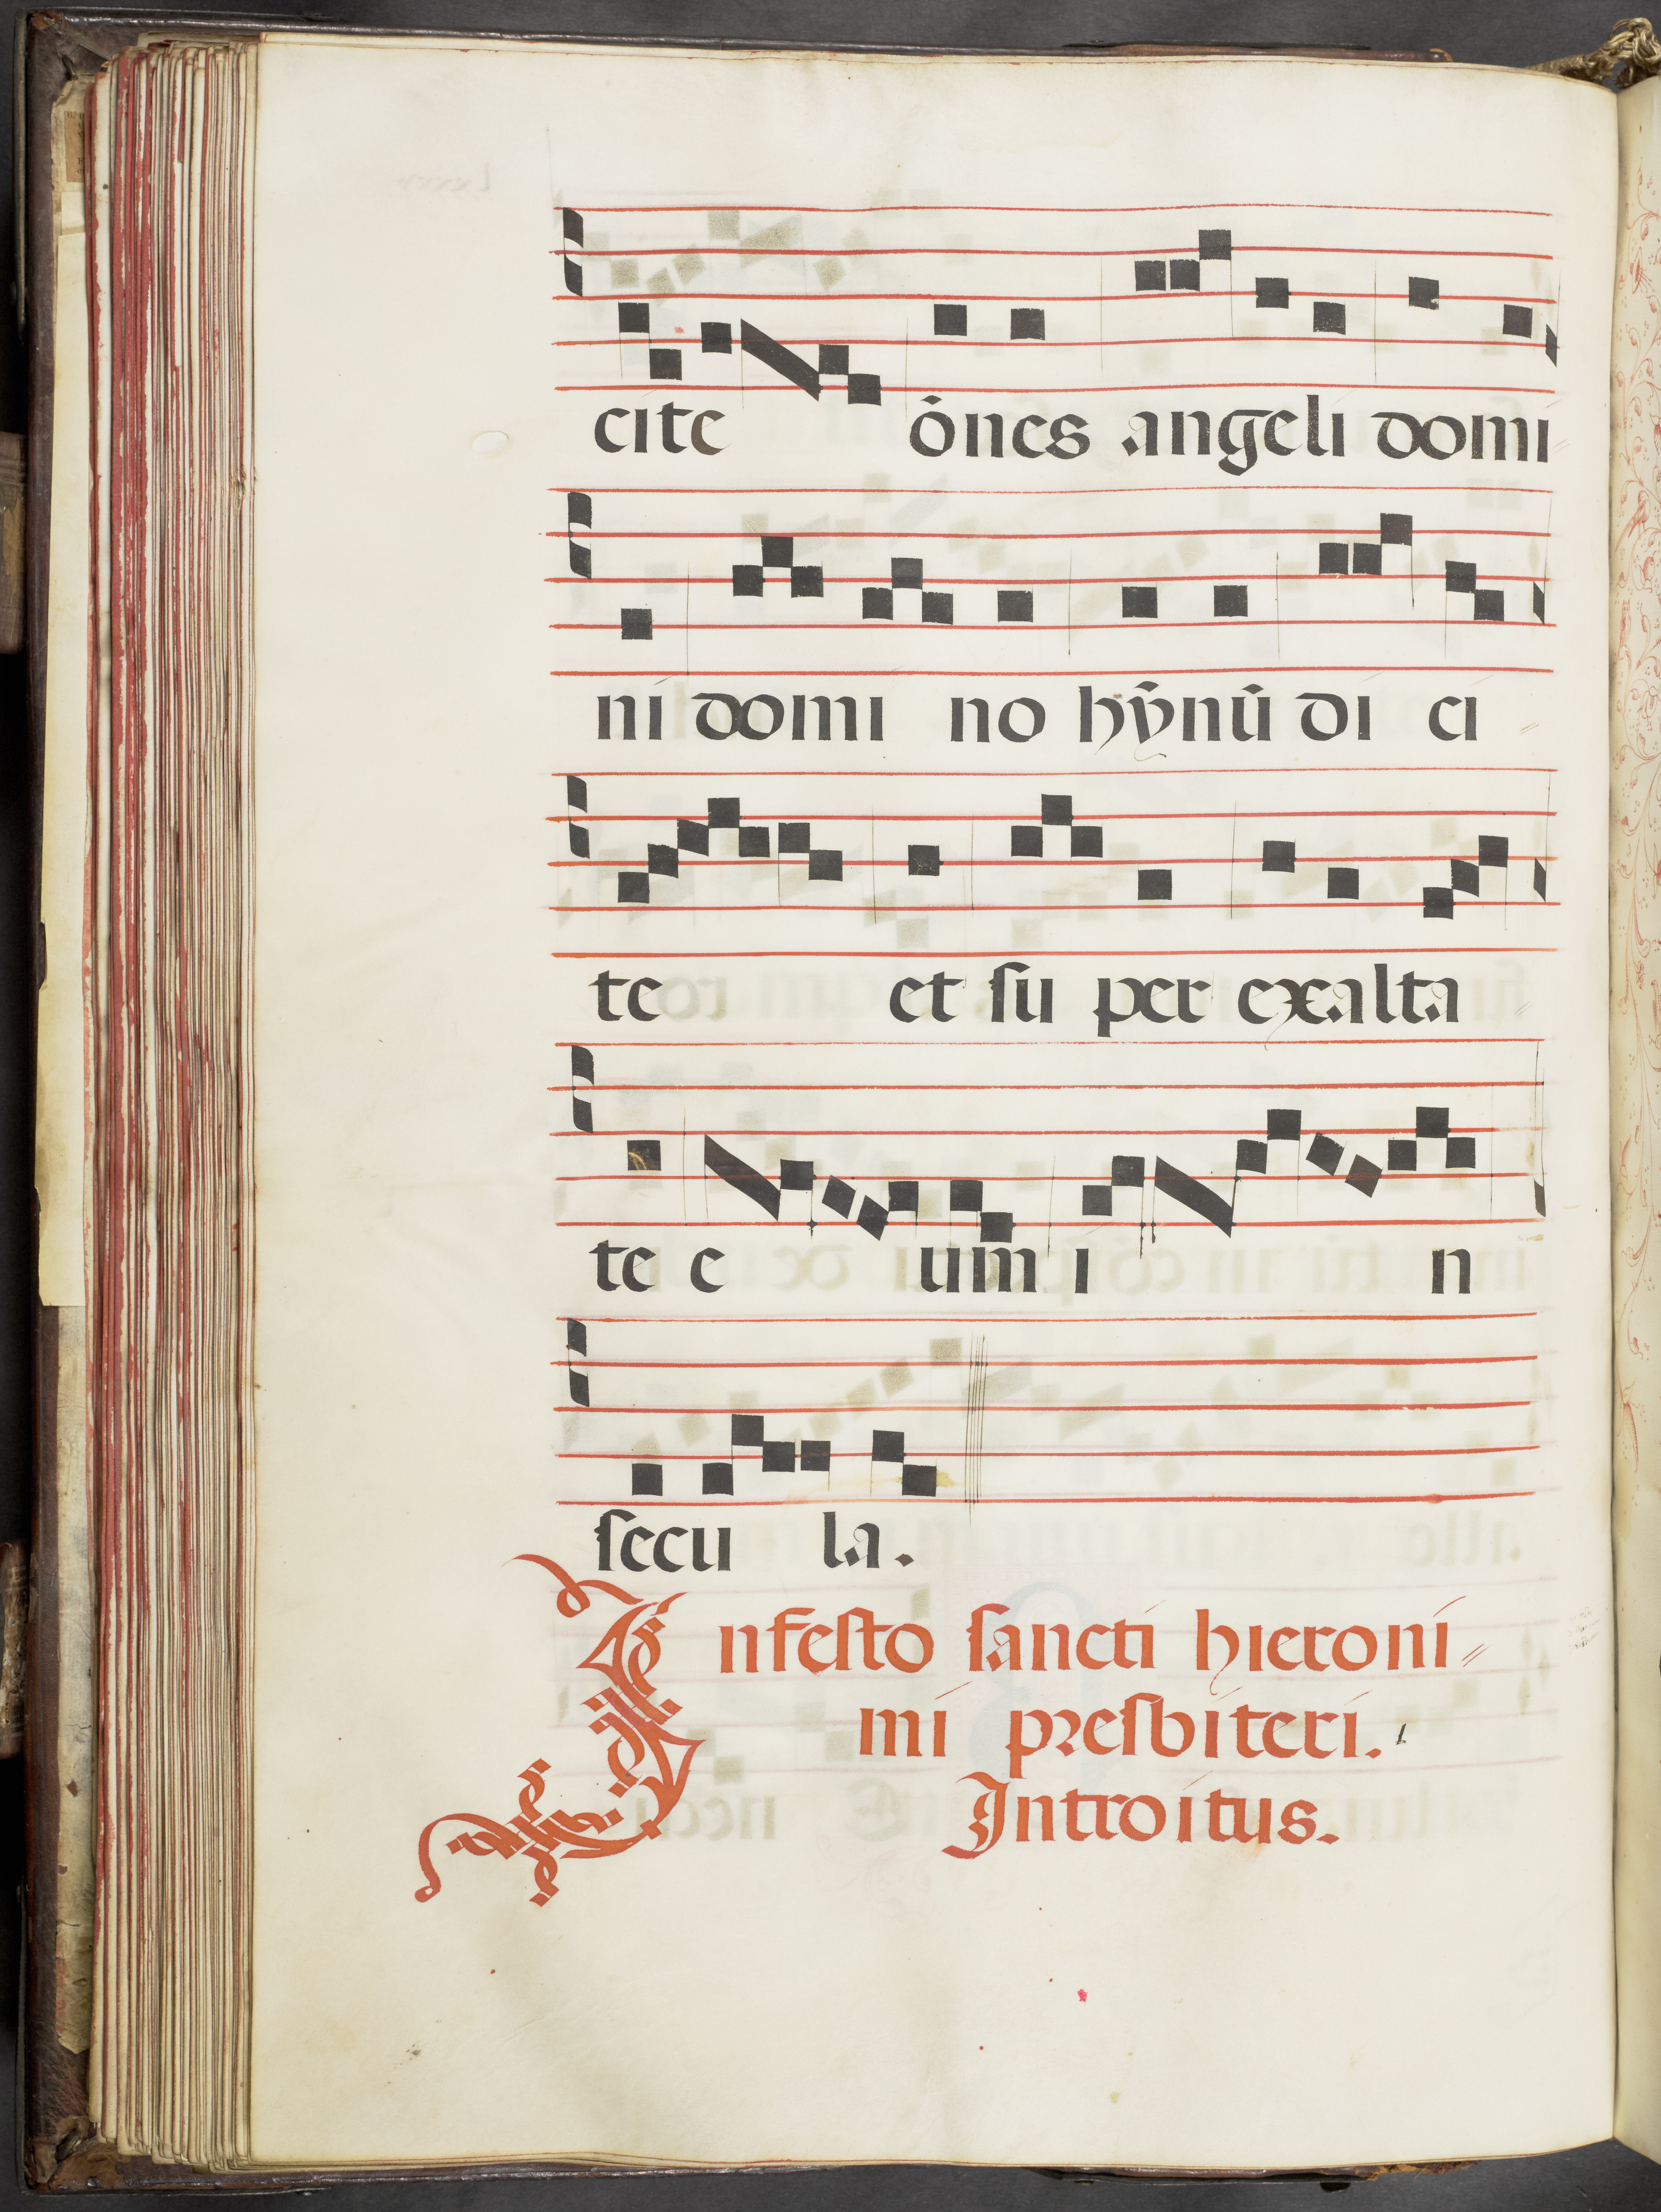 cite ōnes angeli domi
ni domi no hỹnū di ci
te et ſu per exalta
te e um i n
ſecu la.
Infeſto ſancti hieroni
mi presbiteri.
Introitus.